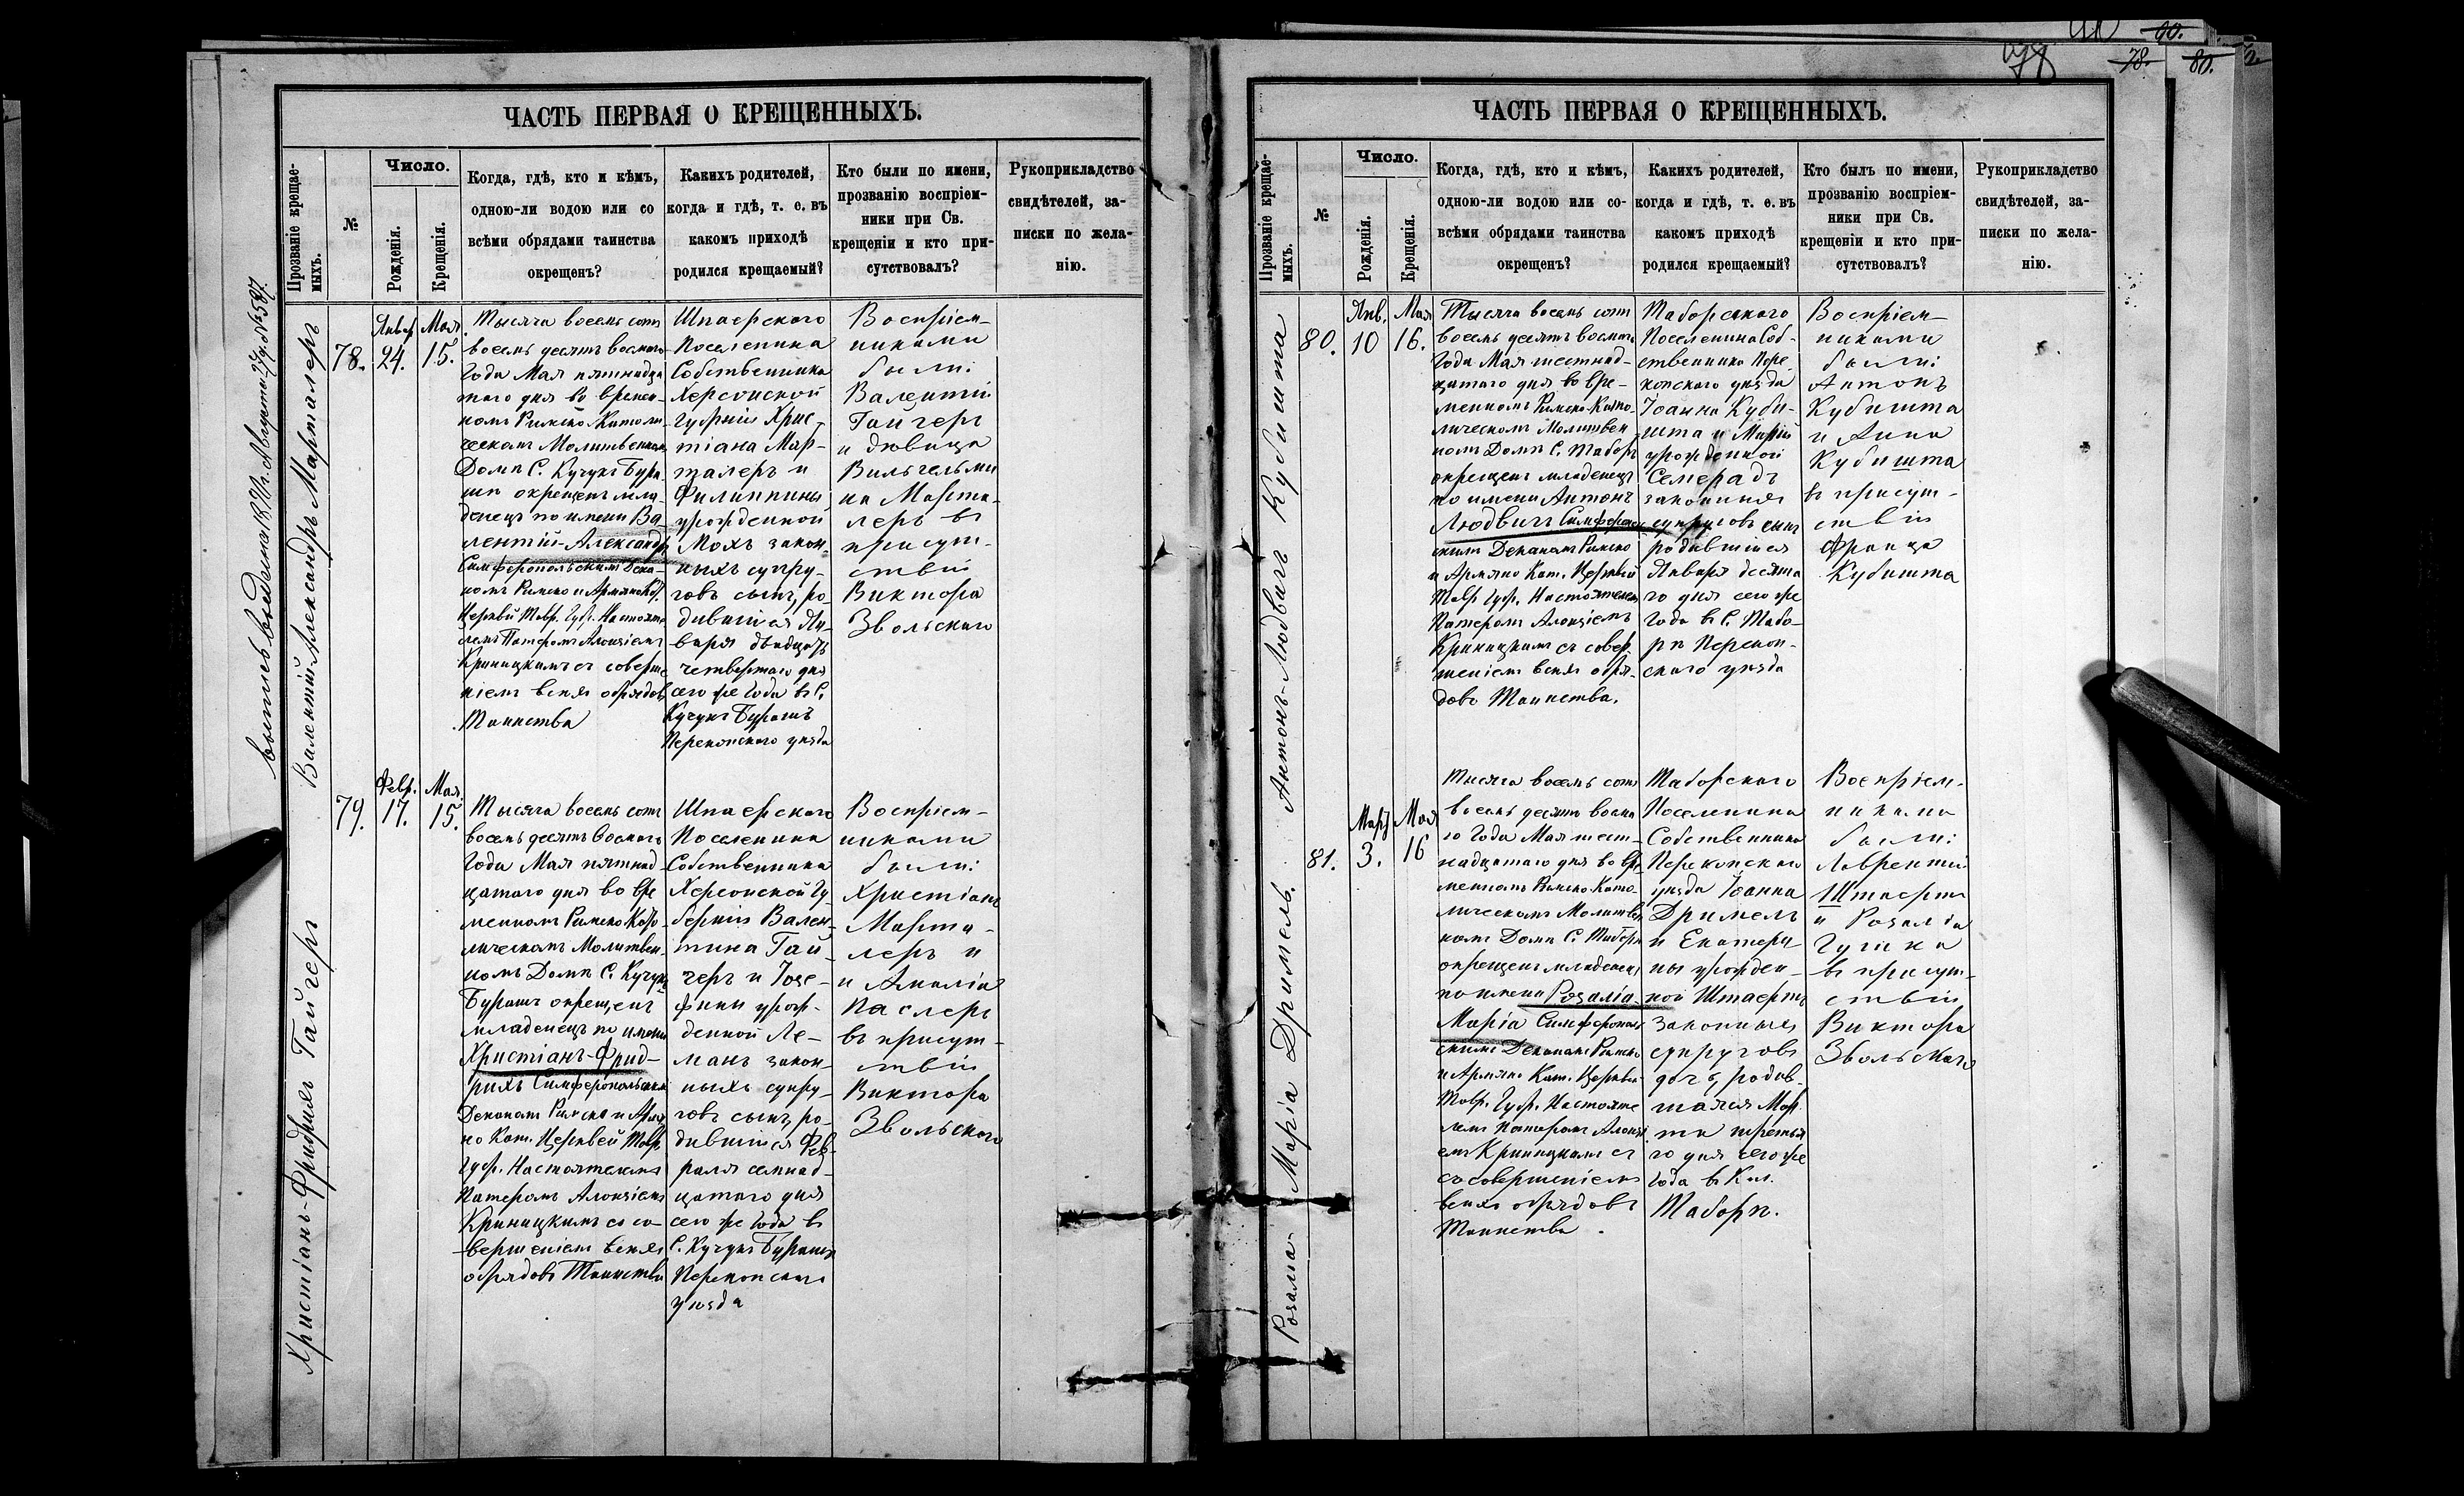 90.
78
78.
80.
ЧАСТЬ ПЕРВАЯ О КРЕЩЕННЫХЪ.
Прозваніе крещае-
мыхъ.
№
Число.
Рожденія.
Крещенія.
Когда, гдѣ, кто и кѣмъ,
одною-ли водою или со
всѣми обрядами таинства
окрещенъ?
Какихъ родителей,
когда и гдѣ, т. е. въ
какомъ приходѣ
родился крещаемый?
Кто были по имени,
прозванію воспріем-
ники при Св.
крещеніи и кто при-
сутствовалъ?
Рукоприкладство
свидѣтелей, за-
писки по жела-
нію.
Валентій-Александръ Марталеръ
78.
Январ
24.
Мая
15.
Тысяча восемь сотъ
восемь десятъ восмого
Года Мая пятнадца
того дня во времен-
номъ Римско-Католи
ческомъ Молитвенномъ
Домѣ С. Кучукъ Бура
шѣ окрещенъ мла-
денецъ по имени Ва-
лентій-Александръ
Симферопольскимъ Дека-
номъ Римско и Армяно Кат.
Церквей Тавр. Губ. Настояте
лемъ Патеромъ Алоизіемъ
Криницкимъ съ соверше
ніемъ всѣхъ обрядовъ
Таинства
Шпаерского
Поселенина
Собственника
Херсонской
Губерніи Хрис-
тіана Мар-
талеръ и
Филиппины
урожденной
Мохъ закон-
ныхъ супру-
говъ сынъ, ро-
дившійся Ян-
варя двадцать
четвертаго дня
сего же Года въ С.
Кучукъ Бурашѣ
Перекопского уѣзда
Воспріем-
никами
были:
Валентій
Гайгеръ
и дѣвица
Вильгельми
на Марта-
леръ въ
присут-
ствіи
Виктора
Звольского
Христіанъ-Фридрихъ Гайгеръ
79.
Февр.
17.
Мая
15.
Тысяча восемь сотъ
восемь десятъ восмого
Года Мая пятнад-
цатого дня во вре
менномъ Римско Като-
лическомъ Молитвен-
номъ Домѣ С. Кучукъ
Бурашѣ окрещенъ
младенецъ по имени
Христіанъ-Фрид-
рихъ Симферопольскимъ
Деканомъ Римско и Армя
но Кат. Церквей Тавр.
Губ. Настоятелемъ
Патеромъ Алоизіемъ
Криницкимъ съ со-
вершеніемъ всѣхъ
обрядовъ Таинства
Шпаерского
Поселенина
Собственника
Херсонской Гу-
берніи Вален-
тина Гай-
геръ и Іозе-
фины урож-
денной Ле-
манъ закон-
ныхъ супру-
говъ сынъ, ро-
дившійся Фев-
раля семнад-
цатого дня
сего же Года въ
С. Кучукъ Бурашѣ
Перекопского
уѣзда
Воспріем-
никами
были:
Христіанъ
Марта-
леръ и
и Амалія
въ присут-
ствіи
Виктора
Звольского
ЧАСТЬ ПЕРВАЯ О КРЕЩЕННЫХЪ.
Прозваніе крещае-
мыхъ.
№
Число.
Рожденія.
Крещенія.
Когда, гдѣ, кто и кѣмъ,
одною-ли водою или со-
всѣми обрядами таинства
окрещенъ?
Какихъ родителей,
когда и гдѣ, т. е. въ
какомъ приходѣ
родился крещаемый?
Кто былъ по имени,
прозванію воспріем-
ники при Св.
крещеніи и кто при-
сутствовалъ?
Рукоприкладство
свидѣтелей, за-
писки по жела-
нію.
Антонъ-Людвигъ Кубишта
80.
Янв.
10
Мая
16.
Тысяча восемь сотъ
восемь десятъ восмого
Года Мая шестнад-
цатого дня во вре-
менномъ Римско Като-
лическомъ Молитвен
номъ Домѣ С. Таборѣ
окрещенъ младенецъ
по имени Антонъ
Людвигъ Симферополь
скимъ Деканомъ Римско
и Армяно Кат. Церквей
Тавр. Губ. Настоятелемъ
Патеромъ Алоизіемъ
Криницкимъ съ совер-
шеніемъ всѣхъ обря-
довъ Таинства.
Таборского
Поселенина Соб-
ственника Пере
копского уѣзда
Іоанна Куби-
шта и Маріи
урожденной
Семерадъ
законныхъ
супруговъ сынъ
родившійся
Января десята
го дня сего же
Года въ С. Табо-
рѣ Перекоп-
ского уѣзда
Воспріем-
никами
были:
Антонъ
Кубишта
и Анна
Кубишта
въ присут-
ствіи
Франца
Кубишта
Розалія-Марія Дримель.
81.
Март
3.
Мая
16
Тысяча восемь сотъ
восемь десятъ восма
го Года Мая шест-
надцатого дня во вре
менномъ Римско Като-
лическомъ Молитвен
номъ Домѣ С. Таборѣ
окрещенъ младенецъ
по имени Розалія
Марія Симферополь
скимъ Деканомъ Римско
и Армяно Кат. Церквей
Тавр. Губ. Настояте
лемъ Патеромъ Алоизі
емъ Криницкимъ съ
совершеніемъ
всѣхъ обрядовъ
Таинства.
Таборского
Поселенина
Собственника
Перекопского
уѣзда Іоанна
Дримель
и Екатери-
ны урожден-
ной Штаертъ
законныхъ
супруговъ
дочь, родив-
шаяся Мар
та третья
го дня сего же
Года въ Кол.
Таборѣ.
Воспріем-
никами
были:
Лаврентій
Штаертъ
и Розалія
въ присут-
ствіи
Виктора
Звольского